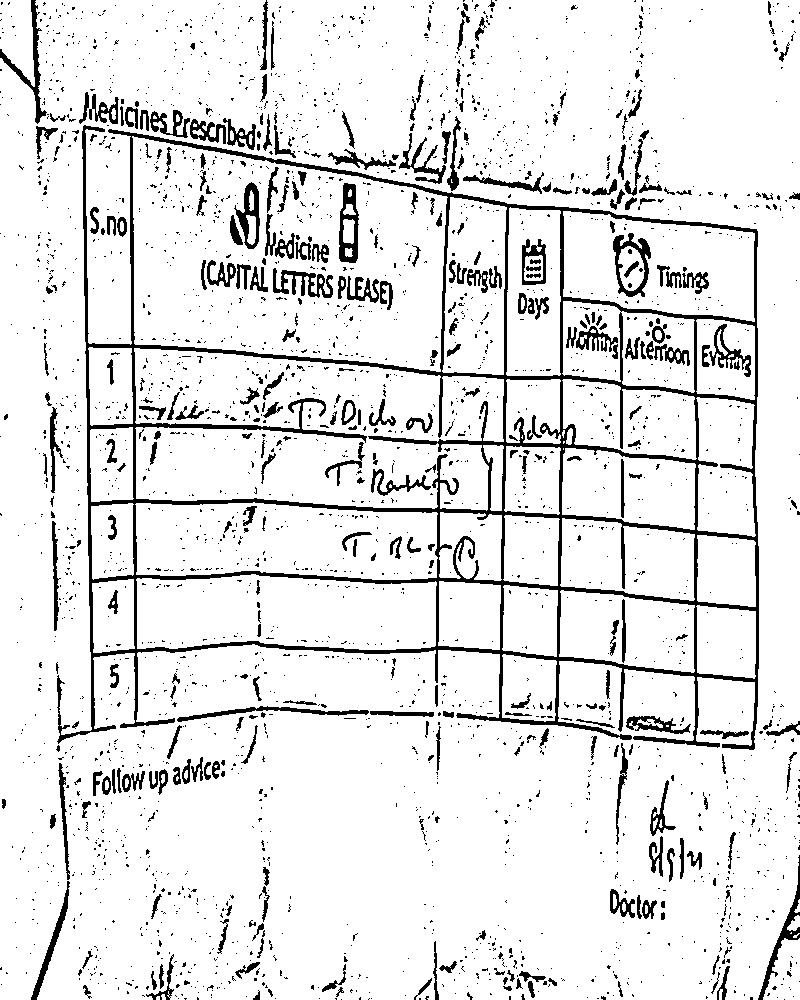 Medicines Prescribed:
S.no
Medicine
(CAPITAL LETTERS PLEASE)
Strength
Days
Timings
Morning
Afternoon
Evening
1
T. Diclo
3days
2
T.
3
T.
4
5
Follow up advice:
Doctor: